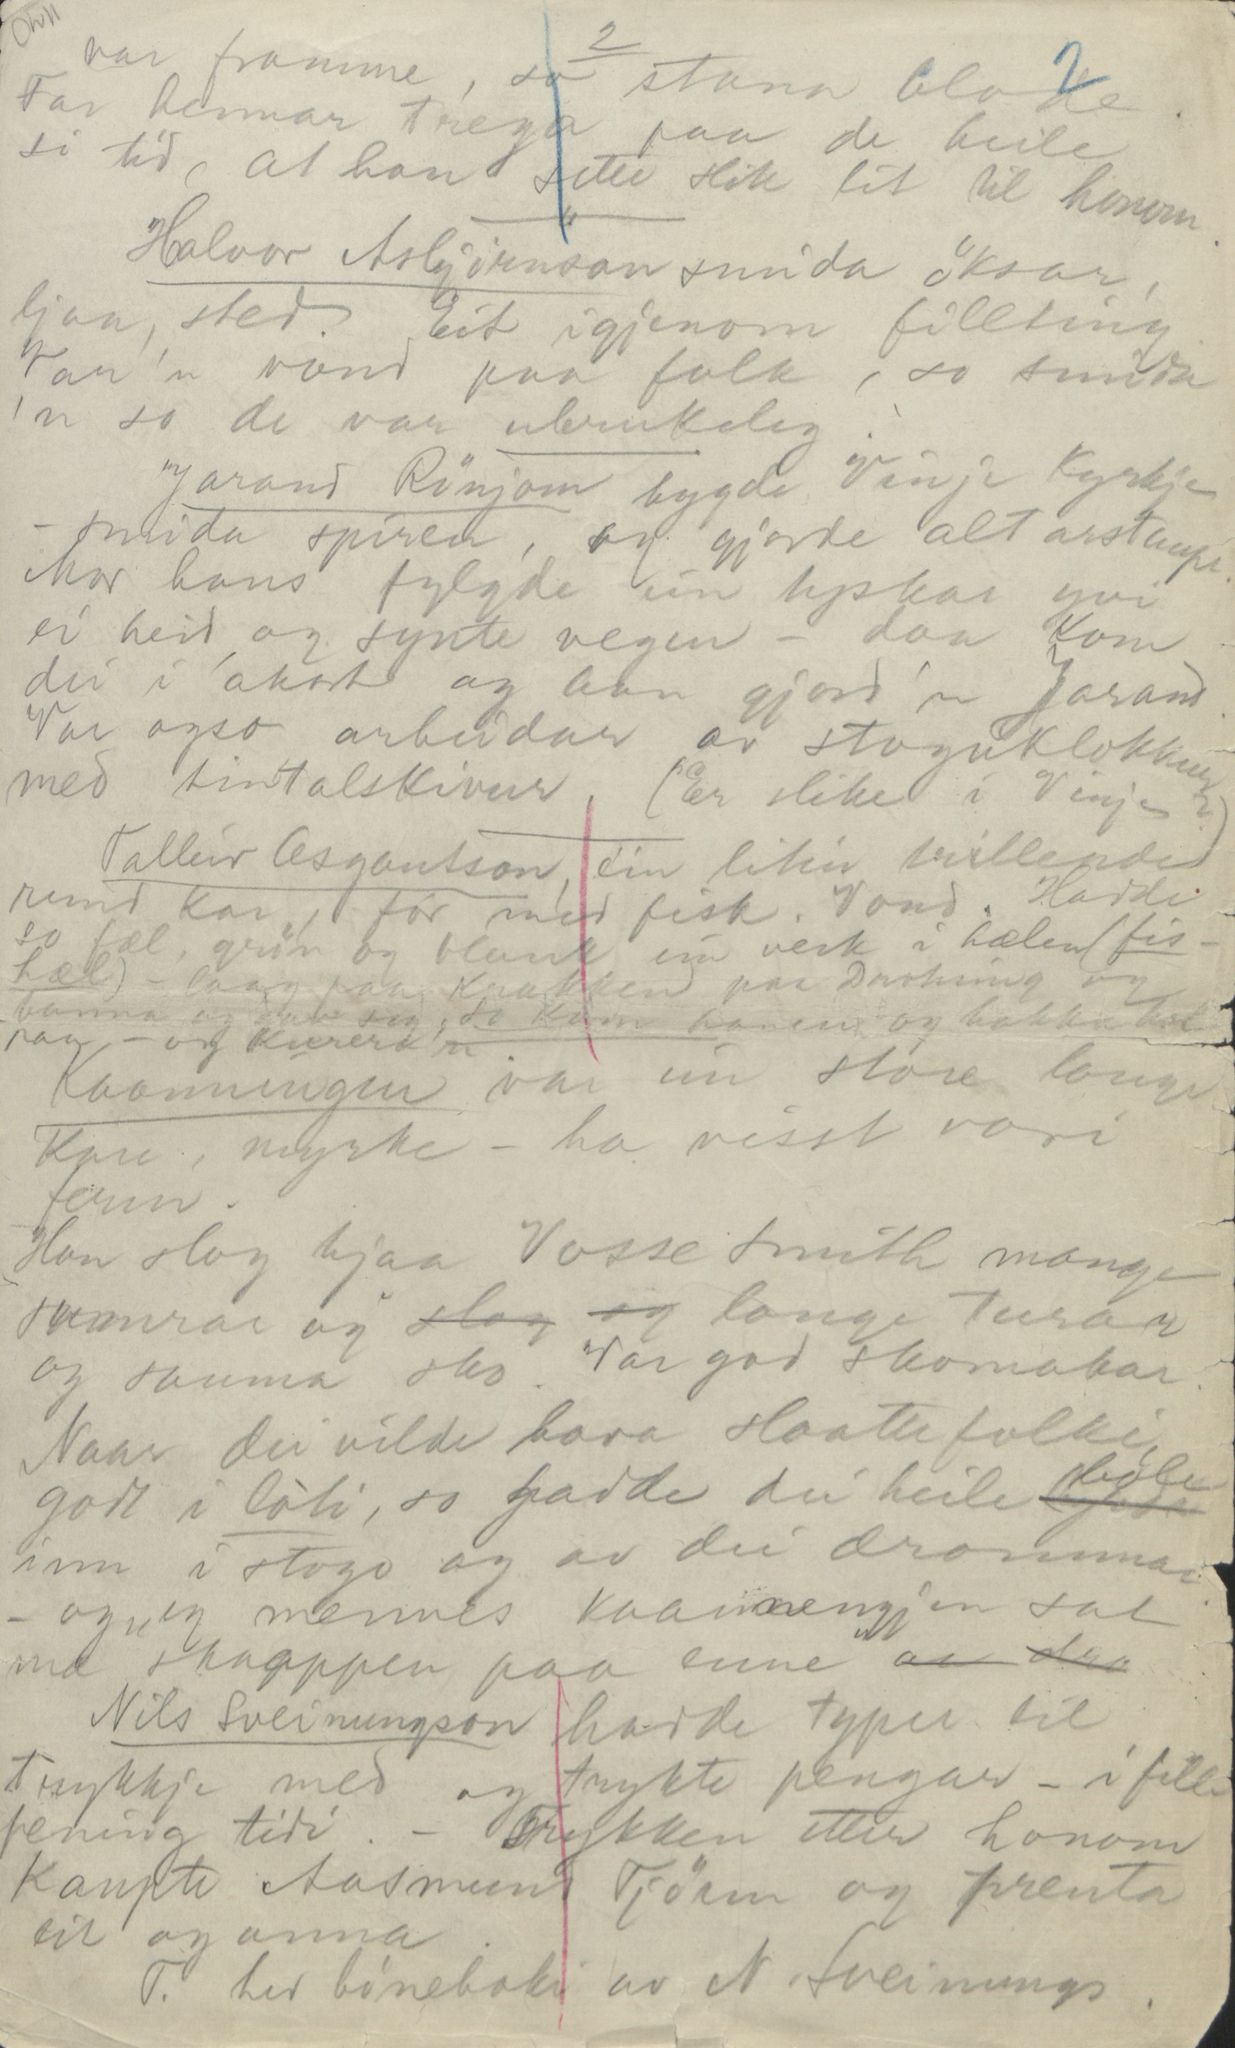 2
2
var framme, so stana blode.
Far hennar trega paa de heile
si tid, at han sette slik lit til honom.
"
Halvor Asbjörnson smida öksar,
ljaa, sted. Eit igjenom fillting
Var'n vond paa folk, so smida
'n so de var ubrukeleg.
Jarand Rönjom bygde Vinje Kyrkje
- smida spiren, og gjorde altarstaupi.
Mor hans fylgde ein tyskar yvi
ei heid og synte vegen - daa kom
dei i akort og han gjord'n Jarand.
Var ogso arbeidar av stoguklokkur
med tintalskivur. (Er slike i Vinje?)
Talleiv Asgautson, ein liten trillende
rund kar, for med fisk. Vond. Hadde
so fæl, grön og blank ein verk i hælen (fis-
hæl) - laag paa Krakken paa
banna og so kom hanen og hakka hol
paa - og kurera'n.
Kaanningen var ein store lange
Kare, myrke - ha visst vori
fenn.
Han slog hjaa Vosse Smith mange
sumrar og slog og lange turar
og sauma sko. Var god skomakar.
Naar dei vilde hava slaattefolki
godt i löti, so hadde dei heile böle
inn i stogo og av dei drammar
- og eg mennes kaanneengjen sat
me skaappen paa enne
Nils Sveinungson hadde typer til
trykkje med og trykte pengar - i fille
pening tidi. - Trykken etter honom
Kaupte Aasmund Tjönn og prenta
eit og anna.
T. her böneboki av N. Sveinungs.